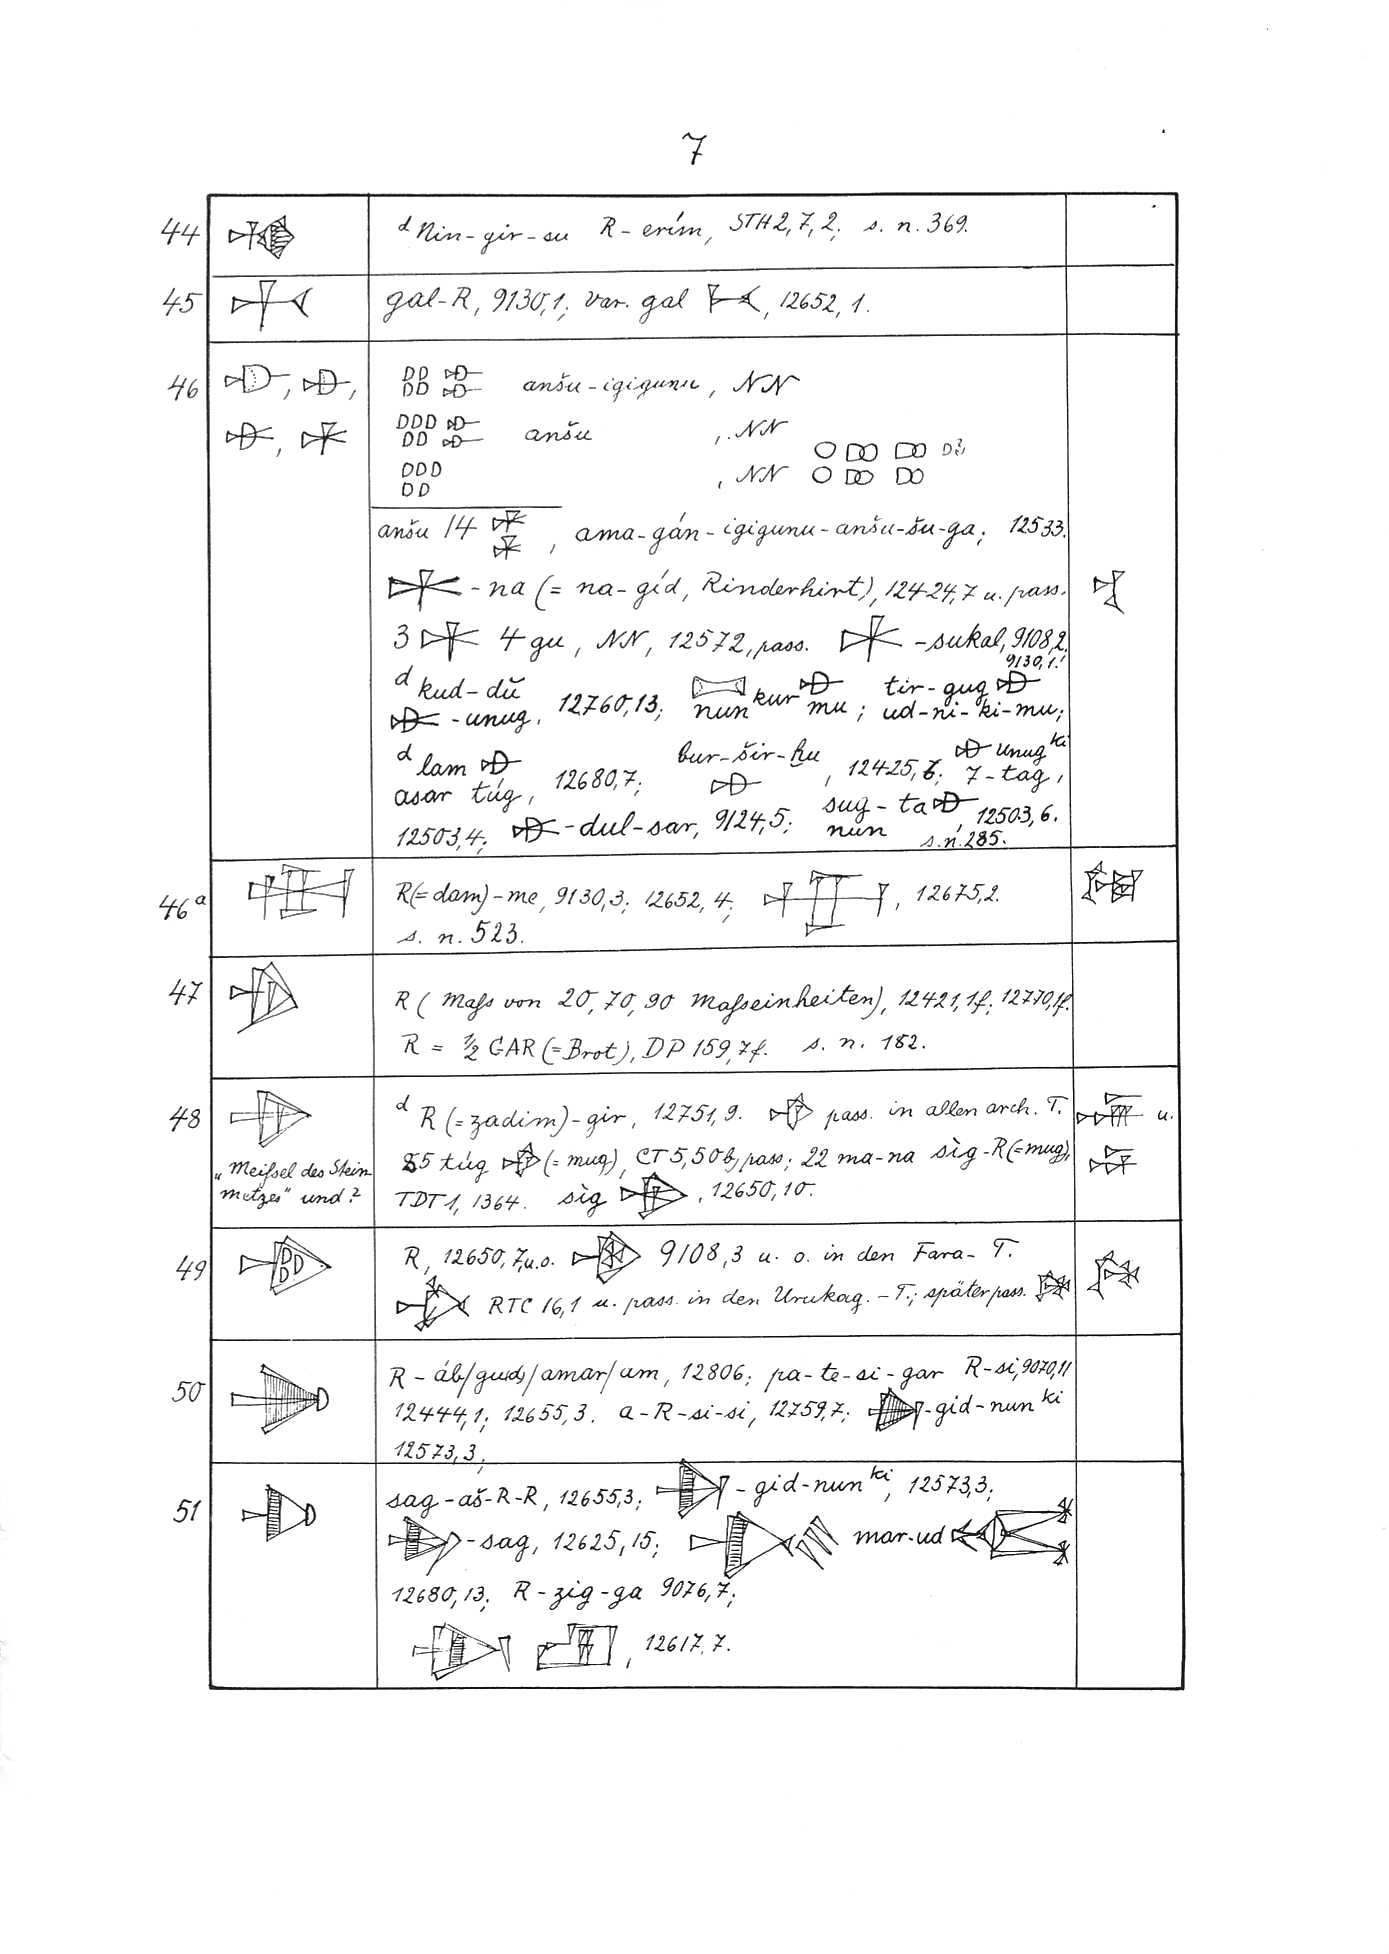 7
44 ᵈNin-gir-su R-erím, STH 2,7,2; s. n. 369.
45 gal-R, 9130,1; var. gal , 12652,1.
46 , , anšu-igigunu, NN
, anšu ,. NN
, NN
anšu 14 , ama-gán-igigunu-anšu-šu-ga; 12533.
-na (= na-gíd, Rinderhirt), 12424,7 u. pass.
3 4 gu, NN, 12572, pass. -sukal, 9108,2.
9130,1!
ᵈkud-dŭ -unug, 12760,13; nun kur mu; tir-gug ud-ni-ki-mu;
ᵈlam asar túg, 12680,7; bur-šir-ḫu , 12425,6; unugᵏⁱ 7-tag,
12503,4; -dul-sar, 9124,5; sug-ta nun , 12503,6.
s. n. 285.
46ᵃ R(=dam)-me, 9130,3; 12652,4; , 12675,2.
s. n. 523.
47 R (Maß von 20, 70, 90 Maßeinheiten), 12421,1f; 12770,1f.
R = ½ GAR (=Brot), DP 159,7f. s. n. 182.
48 ᵈR (=zadim)-gir, 12751,9. pass. in allen arch. T. u.
„Meißel des Steinmetzes“ und?
túg (=mug), CT 5,50b, pass; 22 ma-na sìg-R (=mug),
TDT 1, 1364. sìg , 12650,10.
49 R, 12650,7, u.o. 9108,3 u. o. in den Fara-T.
RTC 16,1 u. pass. in den Urukag.-T.; später pass.
50 R-áb/gud/amar/am, 12806; pa-te-si-gar R-si, 9070,11
12444,1; 12655,3. a-R-si-si, 12759,7; -gid-nunᵏⁱ
12573,3;
51 sag-aš-R-R, 12655,3; -gid-nunᵏⁱ, 12573,3;
-sag, 12625,15; mar-ud
12680,13; R-zig-ga 9076,7;
, 12617,7.